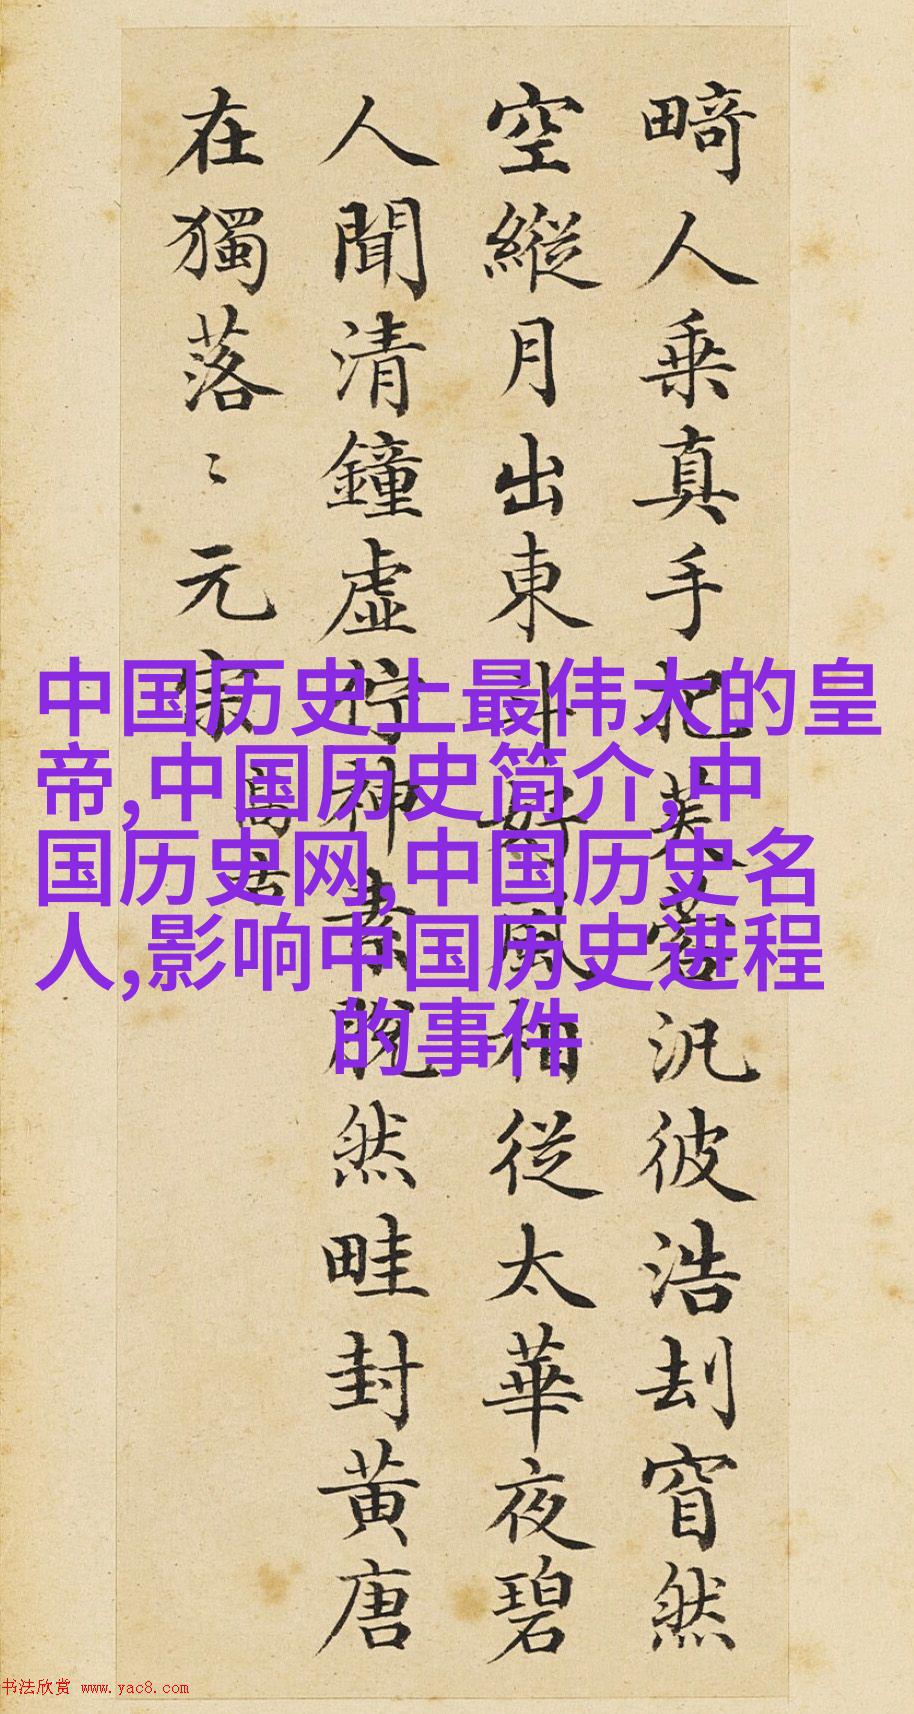 畸人乗真手把芙蓉汎彼浩刦窅然
空縱月出東斗好風相從太華夜碧
人聞清鐘虛佇神素脫然畦封黄唐
在獨落〻元宗
高古
中国历史上最伟大的皇
帝,中国历史简介,中
国历史网,中国历史名
人,影响中国历史进程
的事件
书法欣赏 www.yac8.com